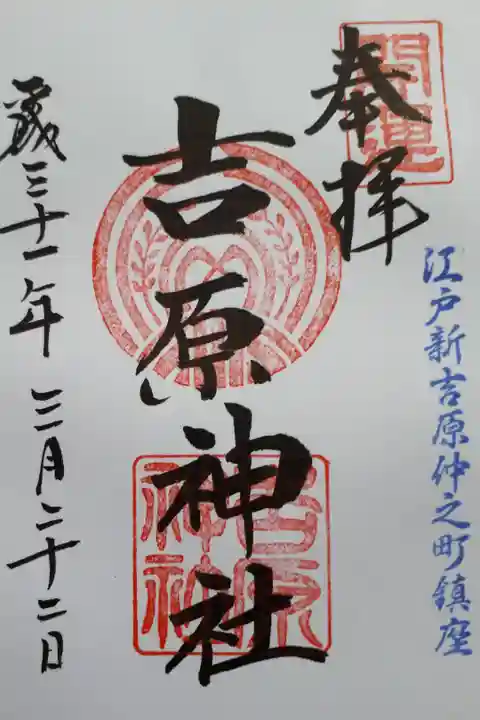 開運
奉拝
江戸新吉原仲之町鎮座
吉原神社
歳三十一年三月二十二日